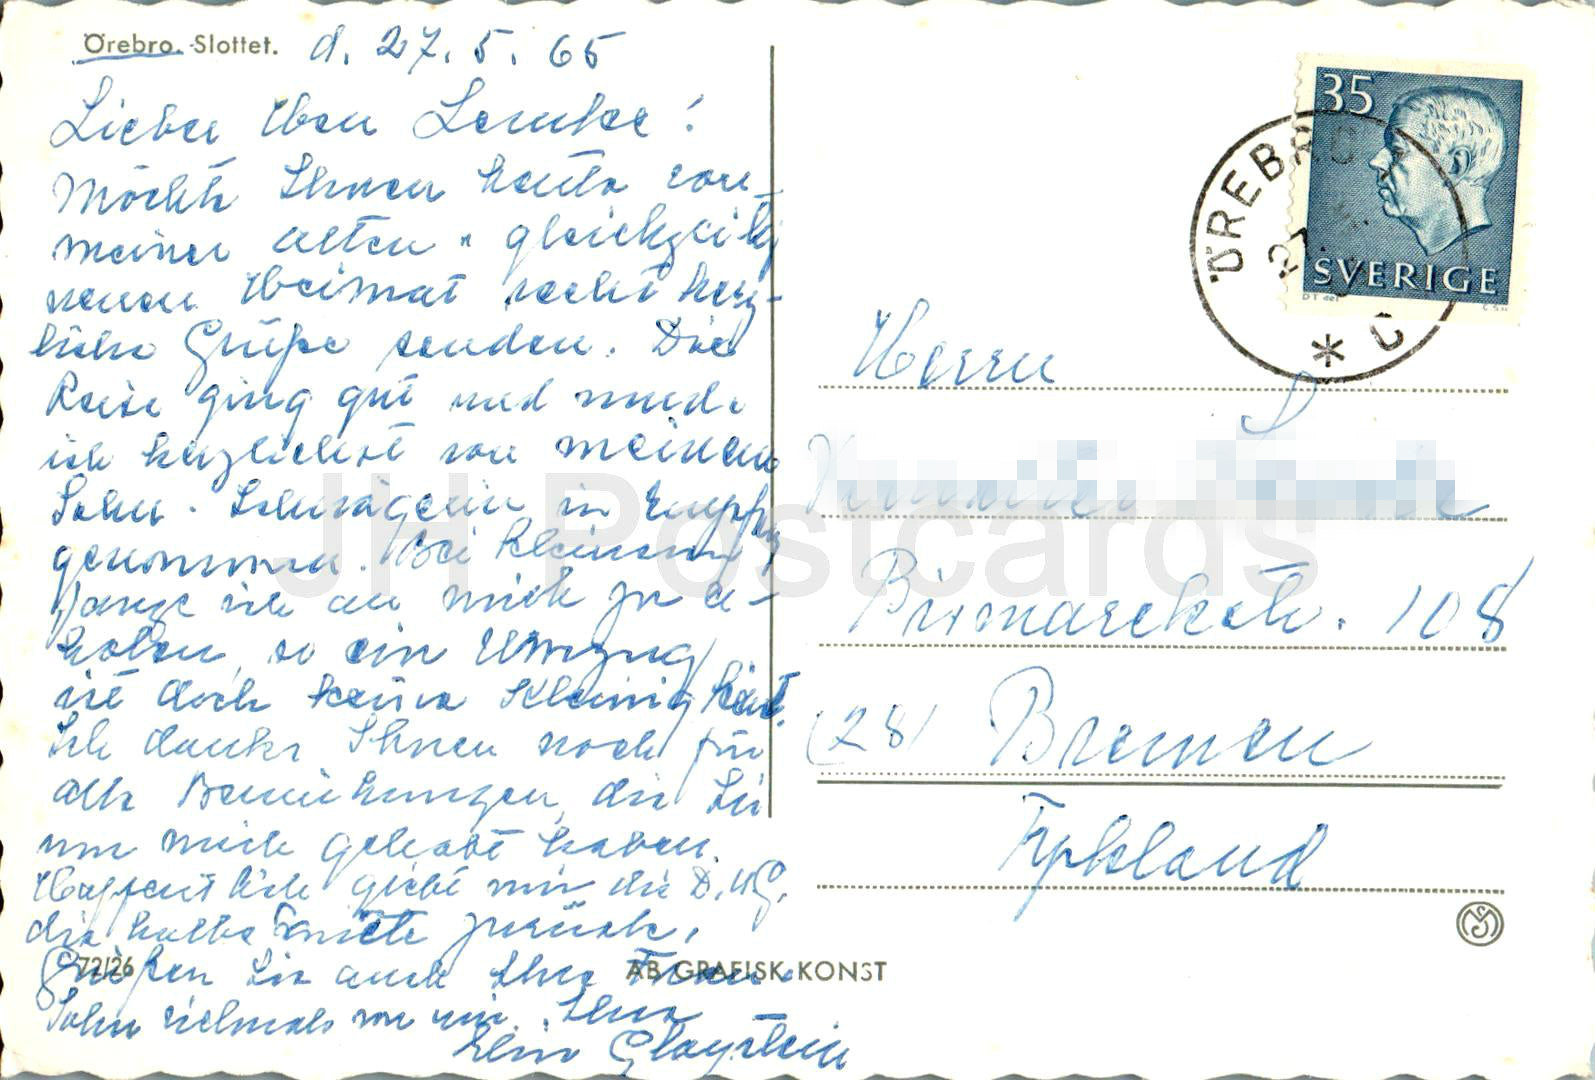 Örebro. Slottet. d. 27. 5. 65
Lieber Herr Lemke!
Möchte Ihnen heute von
meiner alten u. gleichzeitig
neuen Heimat recht herz-
liche Grüße senden. Die
Reise ging gut und wurde
ich herzlichst von meinem
Sohn u. Schwägerin in Empfg
genommen. Bei kleinem
fange ich an mich zu er-
holen, so ein Umzug
ist doch keine Kleinigkeit.
Ich danke Ihnen noch für
alle Bemühungen, die Sie
um mich gehabt haben.
Hoffentlich giebt mir die D.
die halbe Miete zurück.
Grüßen Sie auch Ihre Frau u.
Sohn vielmals von mir. Ihre
Elin Glaystein
72/26
AB GRAFISK KONST
35
SVERIGE
ÖREBRO
27.
* C
Herrn
Bismarckstr. 108
(28) Bremen
Tyskland
JH Postcards